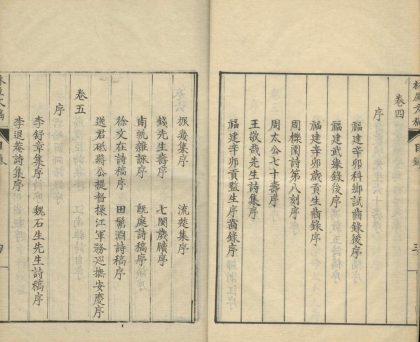 卷四
序
福建辛卯科鄉試齒錄後序
福建武舉錄後序
福建辛卯歲貢生齒錄序
周櫟園詩第八刻序
周太公七十壽序
王敬哉先生詩集序
福建辛卯貢監生序齒錄序
振雅集序 流楚集序
錢先生壽序 七閩歲牘序
南虓雜詠序 既庭詩稿序
徐文在詩稿序 田鷺淵詩稿序
送君砥蔣公提督操江軍務巡撫安慶序
卷五
序
李舒章集序 魏石生先生詩稿序
李退菴詩集序
目錄